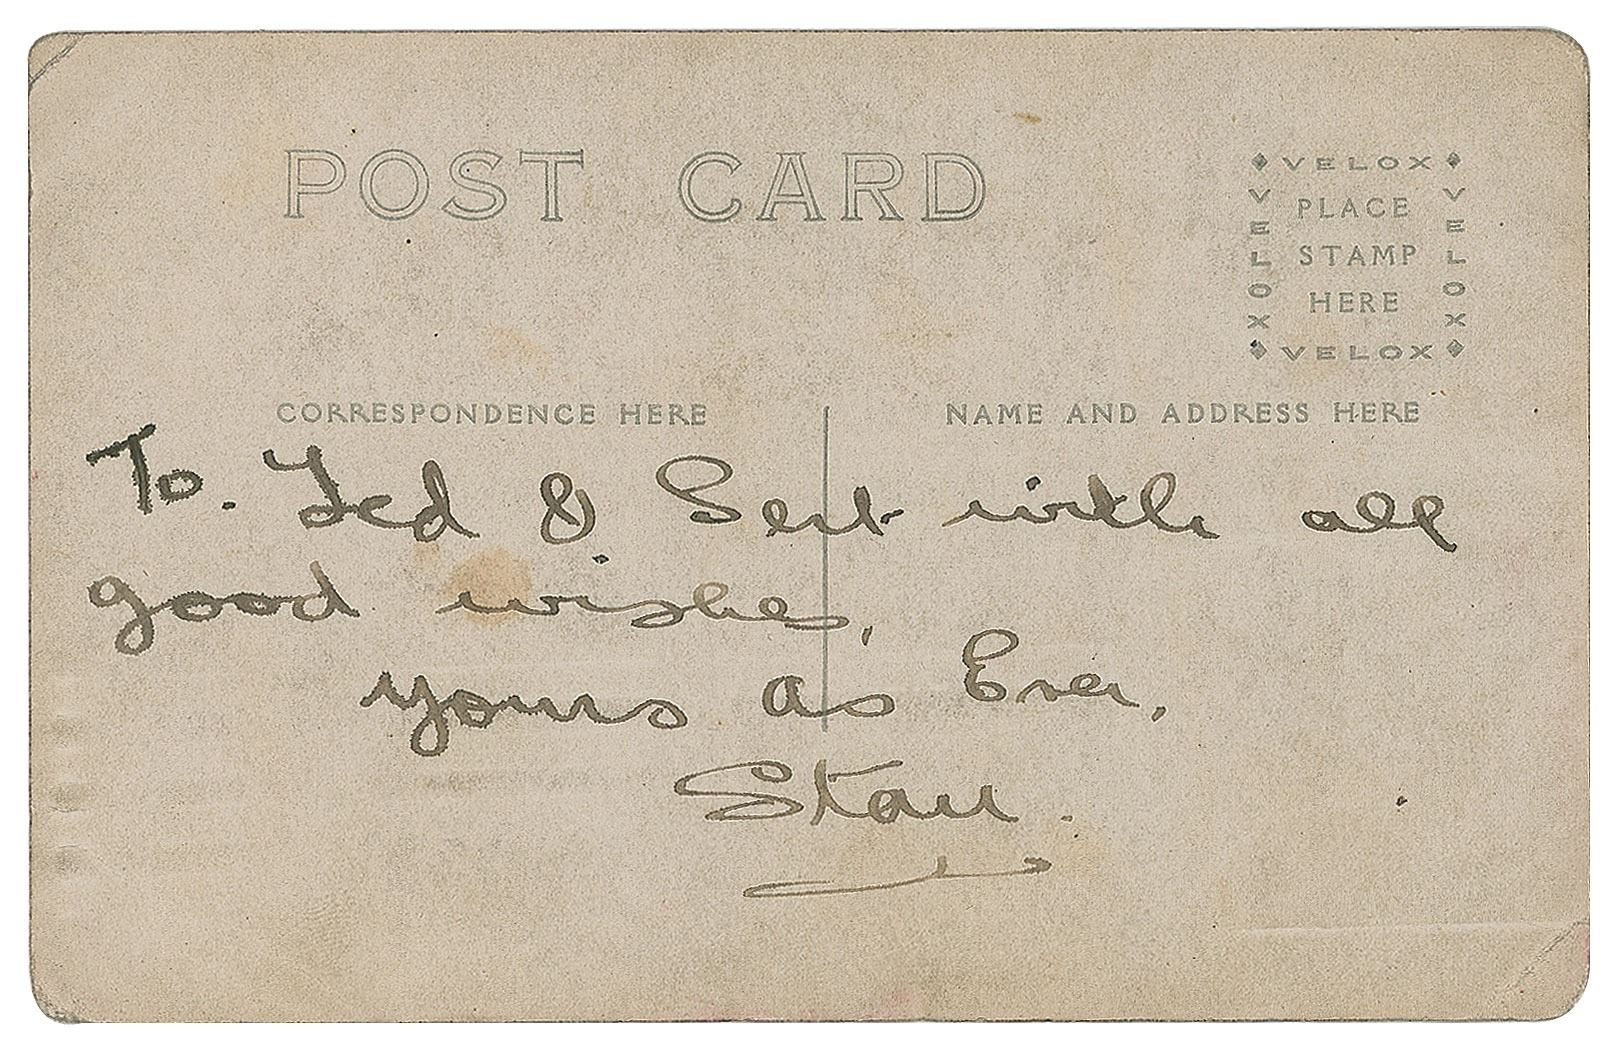 POST CARD
VELOX
VELOX
PLACE
STAMP
HERE
VELOX
VELOX
CORRESPONDENCE HERE
NAME AND ADDRESS HERE
To. Ted & with all
good wishes,
yours as Ever,
Stan.